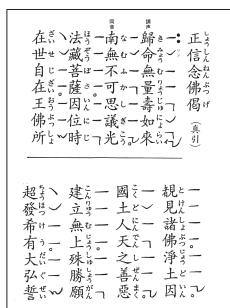 正信念佛偈（真引）
歸命無量壽如來
南無不可思議光
法藏菩薩因位時
在世自在王佛所
覩見諸佛淨土因
國土人天之善惡
建立無上殊勝願
超發希有大弘誓